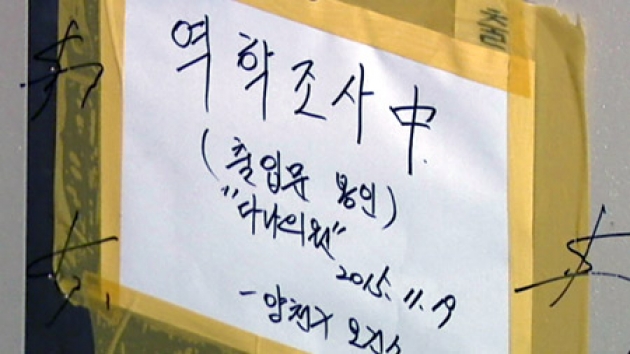 역학조사中
(출입문 봉인)
"다나의원"
2015. 11. 19
-양천구 보건소